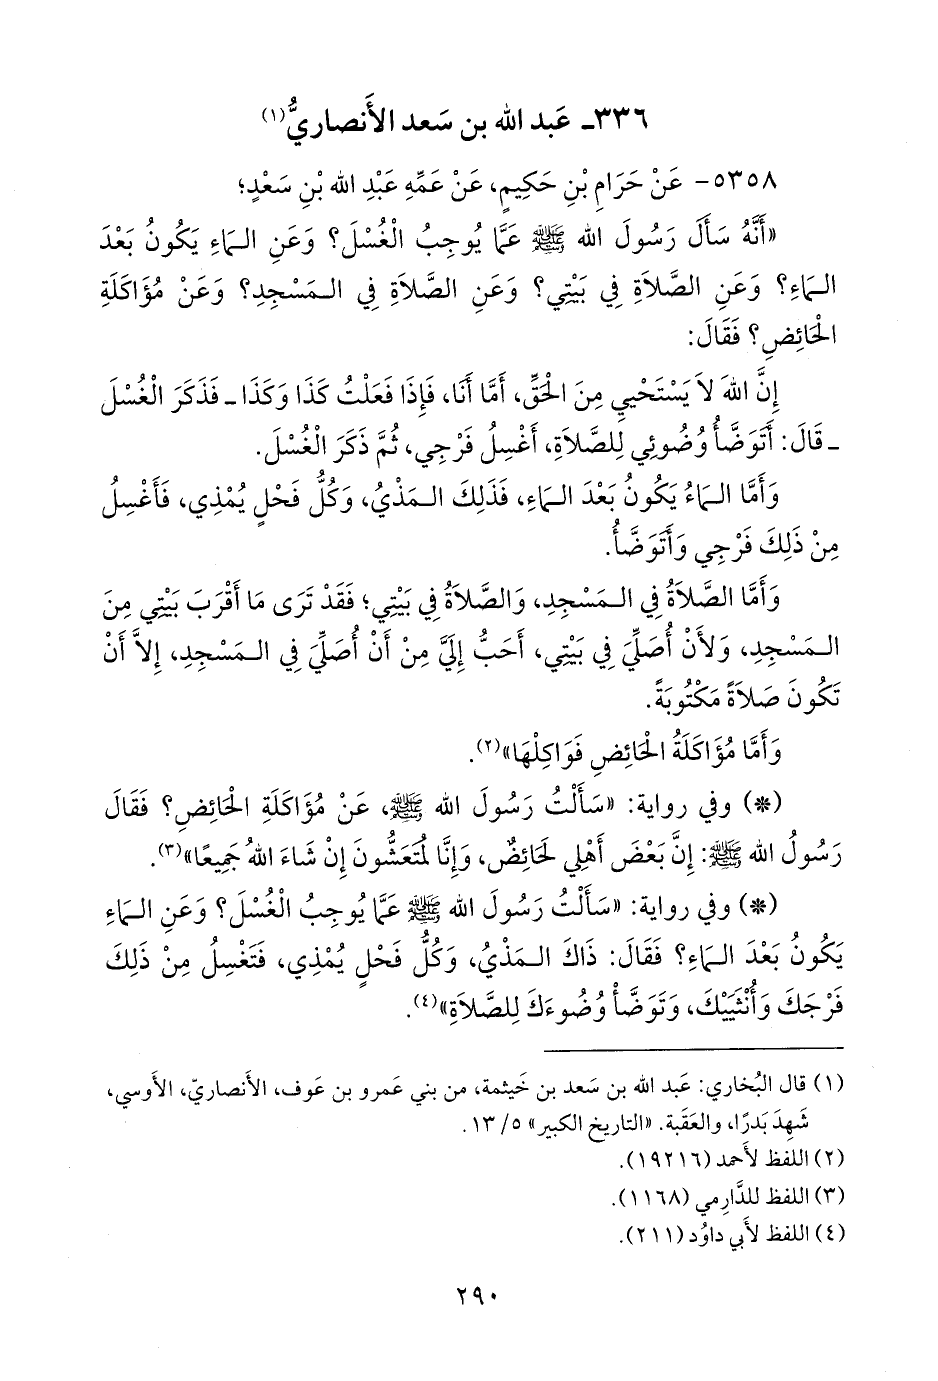 ٣٣٦ـ عَبد الله بن سَعد الأَنصاريُّ(١)
٥٣٥٨- عَنْ حَرَامِ بْنِ حَكِيمٍ، عَنْ عَمِّهِ عَبْدِ الله بْنِ سَعْدٍ؛
«أَنَّهُ سَأَلَ رَسُولَ الله ﷺ عَمَّا يُوجِبُ الْغُسْلَ؟ وَعَنِ الـمَاءِ يَكُونُ بَعْدَ
الـمَاءِ؟ وَعَنِ الصَّلاَةِ فِي بَيْتِي؟ وَعَنِ الصَّلاَةِ فِي الـمَسْجِدِ؟ وَعَنْ مُؤَاكَلَةِ
الْحَائِضِ؟ فَقَالَ:
إِنَّ اللهَ لاَ يَسْتَحْيِي مِنَ الْحَقِّ، أَمَّا أَنَا، فَإِذَا فَعَلْتُ كَذَا وَكَذَا ـ فَذَكَرَ الْغُسْلَ
ـ قَالَ: أَتَوَضَّأُ وُضُوئِي لِلصَّلاَةِ، أَغْسِلُ فَرْجِي، ثُمَّ ذَكَرَ الْغُسْلَ.
وَأَمَّا الـمَاءُ يَكُونُ بَعْدَ الـمَاءِ، فَذَلِكَ الـمَذْيُ، وَكُلُّ فَحْلٍ يُمْذِي، فَأَغْسِلُ
مِنْ ذَلِكَ فَرْجِي وَأَتَوَضَّأُ.
وَأَمَّا الصَّلاَةُ فِي الـمَسْجِدِ، وَالصَّلاَةُ فِي بَيْتِي؛ فَقَدْ تَرَى مَا أَقْرَبَ بَيْتِي مِنَ
الـمَسْجِدِ، وَلأَنْ أُصَلِّيَ فِي بَيْتِي، أَحَبُّ إِلَيَّ مِنْ أَنْ أُصَلِّيَ فِي الـمَسْجِدِ، إِلاَّ أَنْ
تَكُونَ صَلاَةً مَكْتُوبَةً.
وَأَمَّا مُؤَاكَلَةُ الْحَائِضِ فَوَاكِلْهَا»(٢).
(*) وفي رواية: «سَأَلْتُ رَسُولَ الله ﷺ، عَنْ مُؤَاكَلَةِ الْحَائِضِ؟ فَقَالَ
رَسُولُ الله ﷺ: إِنَّ بَعْضَ أَهْلِي لَحَائِضٌ، وَإِنَّا لَمُتَعَشُّونَ إِنْ شَاءَ اللهُ جَمِيعًا»(٣).
(*) وفي رواية: «سَأَلْتُ رَسُولَ الله ﷺ عَمَّا يُوجِبُ الْغُسْلَ؟ وَعَنِ الـمَاءِ
يَكُونُ بَعْدَ الـمَاءِ؟ فَقَالَ: ذَاكَ الـمَذْيُ، وَكُلُّ فَحْلٍ يُمْذِي، فَتَغْسِلُ مِنْ ذَلِكَ
فَرْجَكَ وَأُنْثَيَيْكَ، وَتَوَضَّأْ وُضُوءَكَ لِلصَّلاَةِ»(٤).
(١) قال البُخاري: عَبد الله بن سَعد بن خَيثمة، من بني عَمرو بن عَوف، الأَنصاريّ، الأَوسي،
شَهِدَ بَدرًا، والعَقَبة. «التاريخ الكبير» ٥/ ١٣.
(٢) اللفظ لأَحمد (١٩٢١٦).
(٣) اللفظ للدَّارِمي (١١٦٨).
(٤) اللفظ لأَبي داوُد (٢١١).
٢٩٠